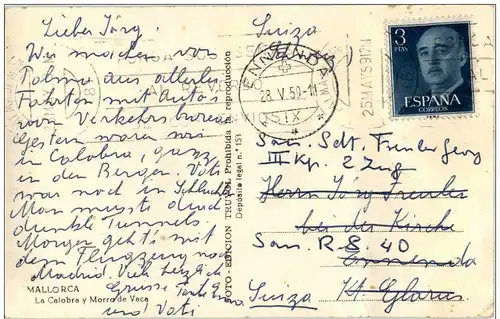 Lieber Jörg.
Wir machen von
Palma aus allerlei
Fahrten mit Autos
vom Verkehrsbureau
Gestern waren wir
in Calobra, ganz
in den Bergen. Vati
war noch in Schlucht
Man musste durch
dunkle Tunnels.
Morgen geht's mit
dem Flugzeug nach
Madrid. Viel herzlich
Grüsse Tante
und Vati
MALLORCA
La Calobra y Morro de Vaca
FOTO - EDICION TRUYOL Prohibida la reproducción
Depósito legal n.° 151
Suiza
ENNENDA
28.V.59.-11
3
PTAS
ESPAÑA
CORREOS
San. Sdt. Freuler Georg
III Kp. 2 Zug
Herrn Jörg Freuler
bei der Kirche
San. R.S. 40
Ennenda
Suiza Kt. Glarus